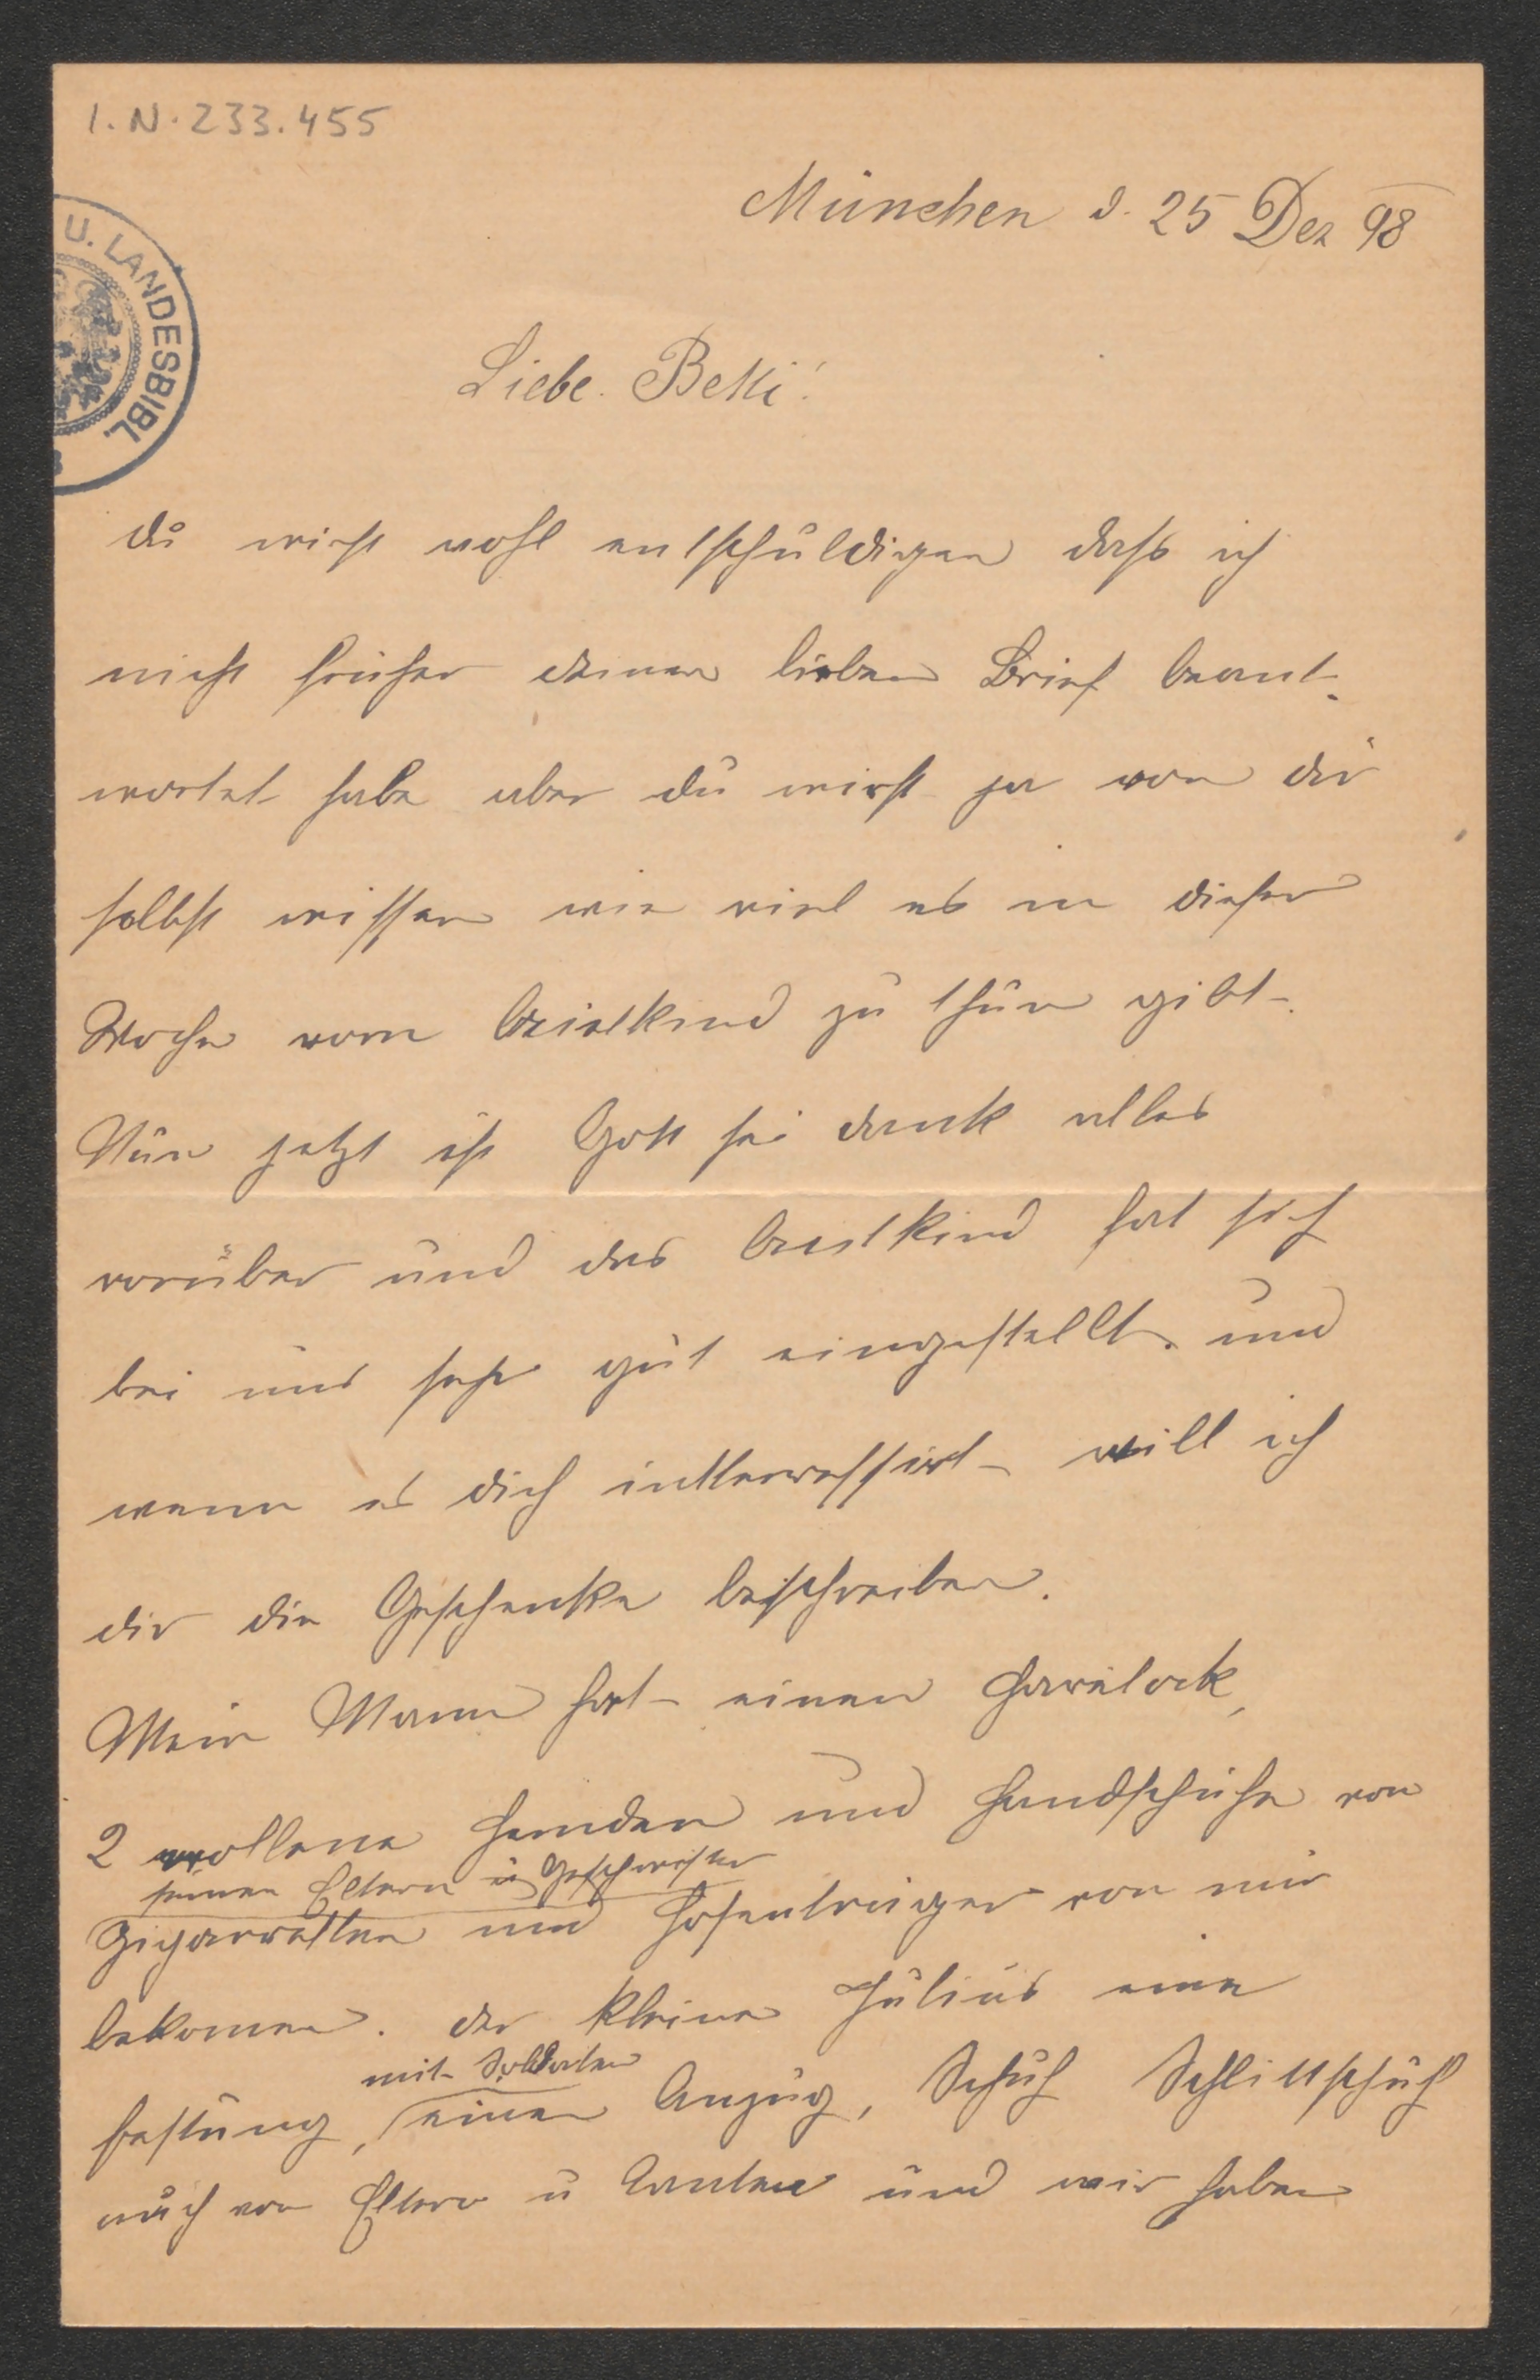 I.N.233.455
U. LANDESBIBL.
München d. 25 Dez 98
Liebe Betti!
du wirst wohl entschuldigen dass ich
nicht früher deinen lieben Brief beant-
wortet habe aber du wirst ja von dir
selbst wissen wie viel es in dieser
Woche vorm Kristkind zu thun gibt.
Nun jetzt ist Gott sei dank alles
vorüber und das Kristkind hat sich
bei uns sehr gut eingestellt. und
wenn es dich intteressirt will ich
dir die Geschenke beschreiben.
Mein Mann hat einen Havelock,
2 wollene Hemden und Handschuhe von
seinen Eltern u Geschwister
Zigarretten und Hosenträger von mir
bekomen. der kleine Julius eine
mit Soldaten
festung, einen Anzug, Schuh Schlittschuh
auch von Eltern u Tanten und wir haben